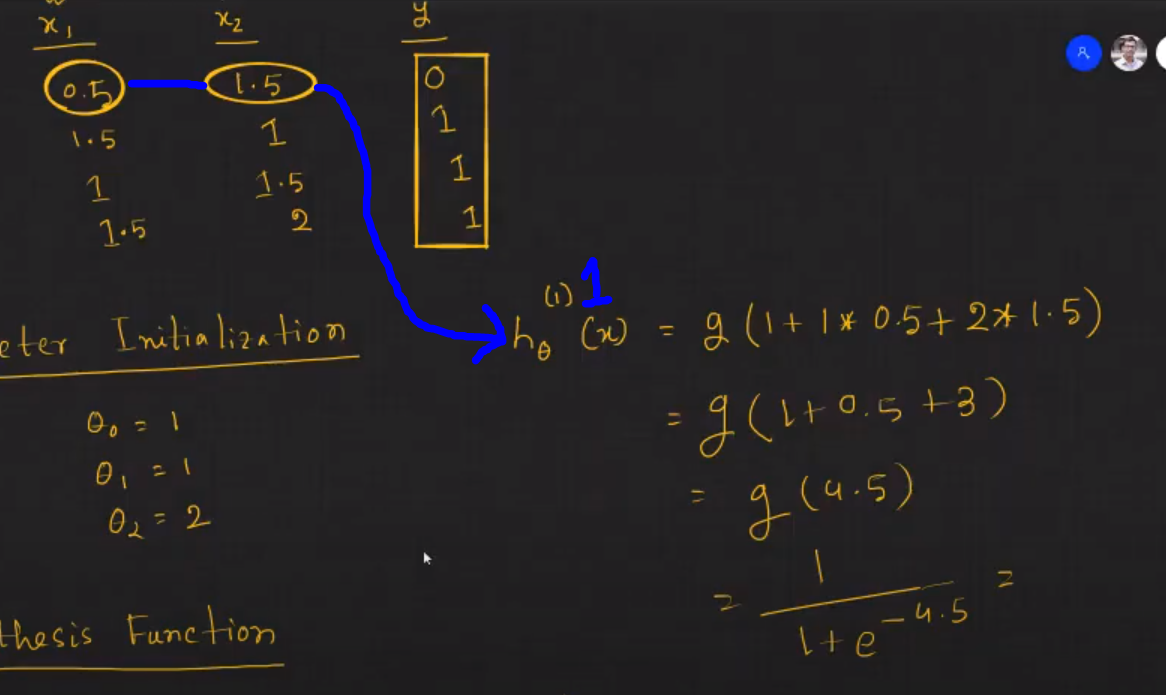 x₁ x₂ y
0.5 1.5 0
1.5 1 1
1 1.5 1
1.5 2 1
eter Initialization
θ₀ = 1
θ₁ = 1
θ₂ = 2
thesis Function
(1) 1
hθ (x) = g (1 + 1 * 0.5 + 2 * 1.5)
= g (1 + 0.5 + 3)
= g (4.5)
= 1 / (1 + e^-4.5) =